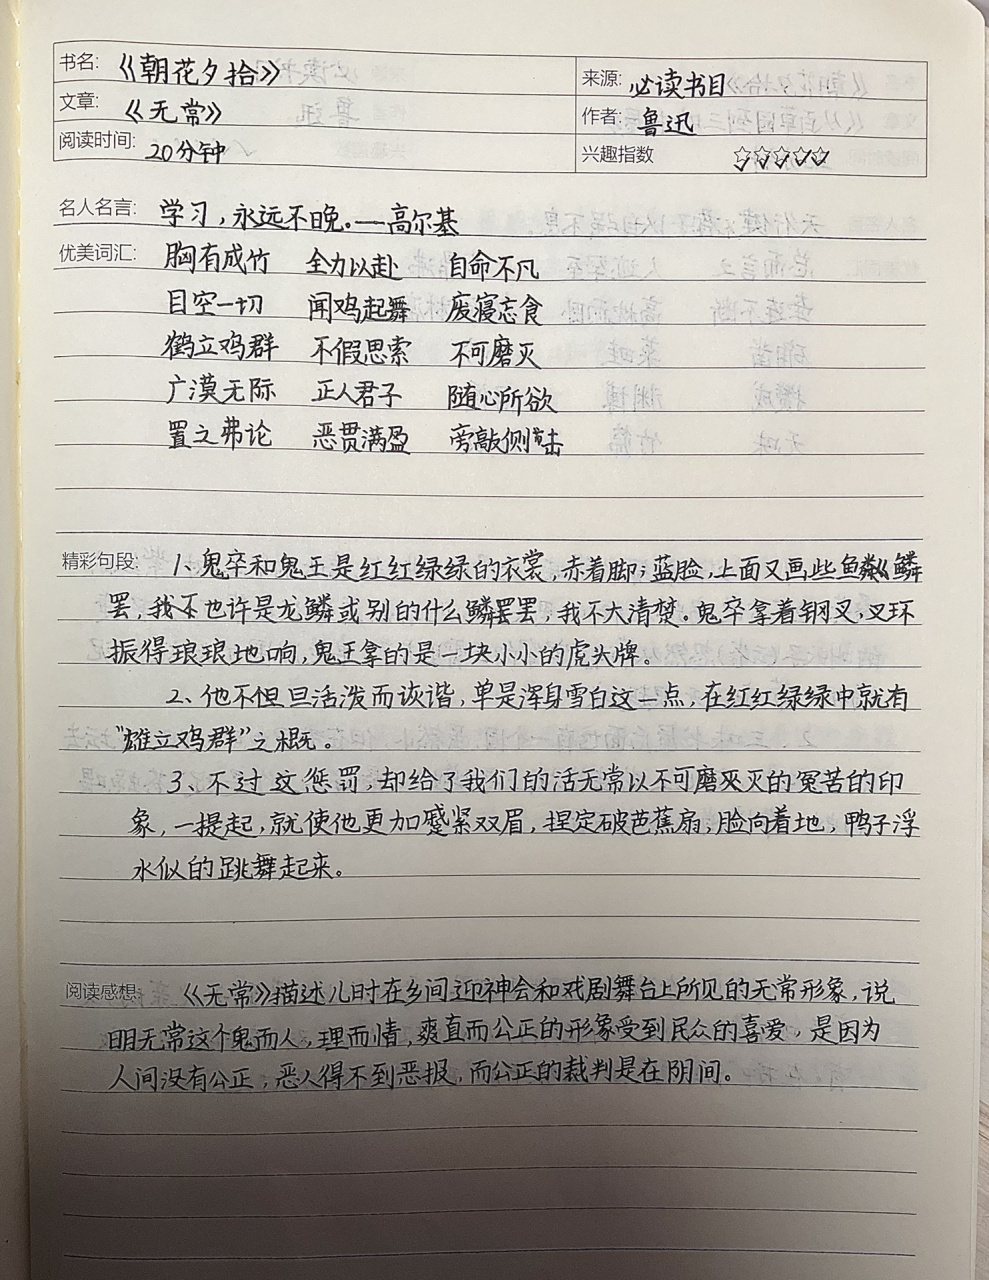 书名: 《朝花夕拾》 来源: 必读书目
文章: 《无常》 作者: 鲁迅
阅读时间: 20分钟 兴趣指数 ☆☆☆☆☆
名人名言: 学习，永远不晚。——高尔基
优美词汇: 胸有成竹 全力以赴 自命不凡
目空一切 闻鸡起舞 废寝忘食
鹤立鸡群 不假思索 不可磨灭
广漠无际 正人君子 随心所欲
置之弗论 恶贯满盈 旁敲侧击
精彩句段: 1、鬼卒和鬼王是红红绿绿的衣裳，赤着脚；蓝脸，上面又画些鱼鳞
罢，我不也许是龙鳞或别的什么鳞罢，我不大清楚。鬼卒拿着钢叉，叉环
振得琅琅地响，鬼王拿的是一块小小的虎头牌。
2、他不但且活泼而诙谐，单是浑身雪白这一点，在红红绿绿中就有
"雄立鸡群"之概。
3、不过这惩罚，却给了我们的活无常以不可磨灭的冤苦的印
象，一提起，就使他更加蹙紧双眉，捏定破芭蕉扇，脸向着地，鸭子浮
水似的跳舞起来。
阅读感想: 《无常》描述儿时在乡间迎神会和戏剧舞台上所见的无常形象，说
明无常这个鬼而人，理而情，爽直而公正的形象受到民众的喜爱，是因为
人间没有公正，恶人得不到恶报，而公正的裁判是在阴间。